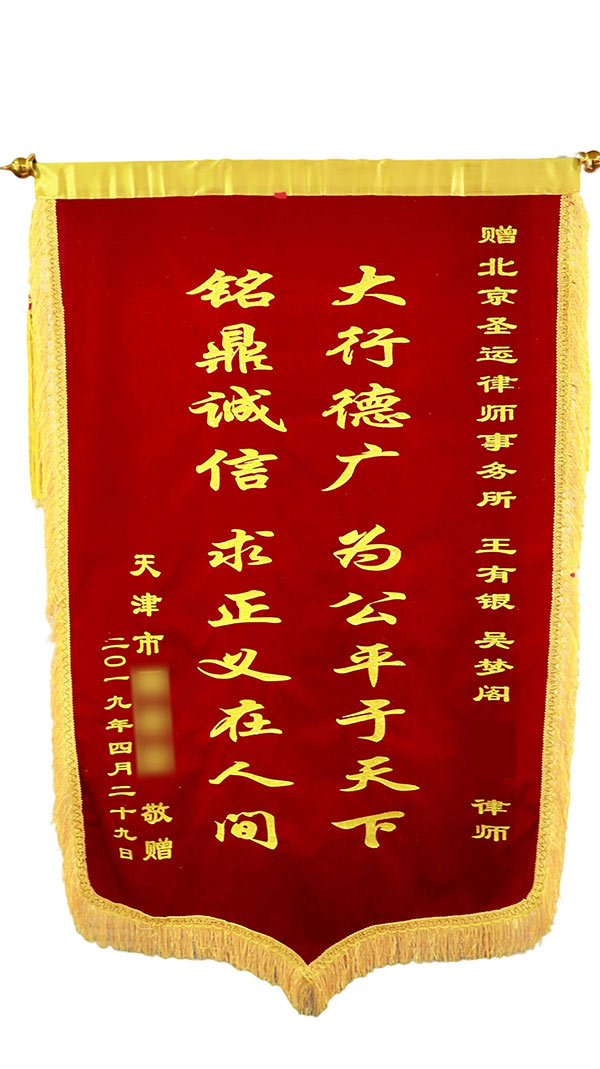 赠北京圣运律师事务所 王有银 吴梦阁 律师
大行德广 为公平于天下
铭鼎诚信 求正义在人间
天津市 敬赠
二〇一九年四月二十九日